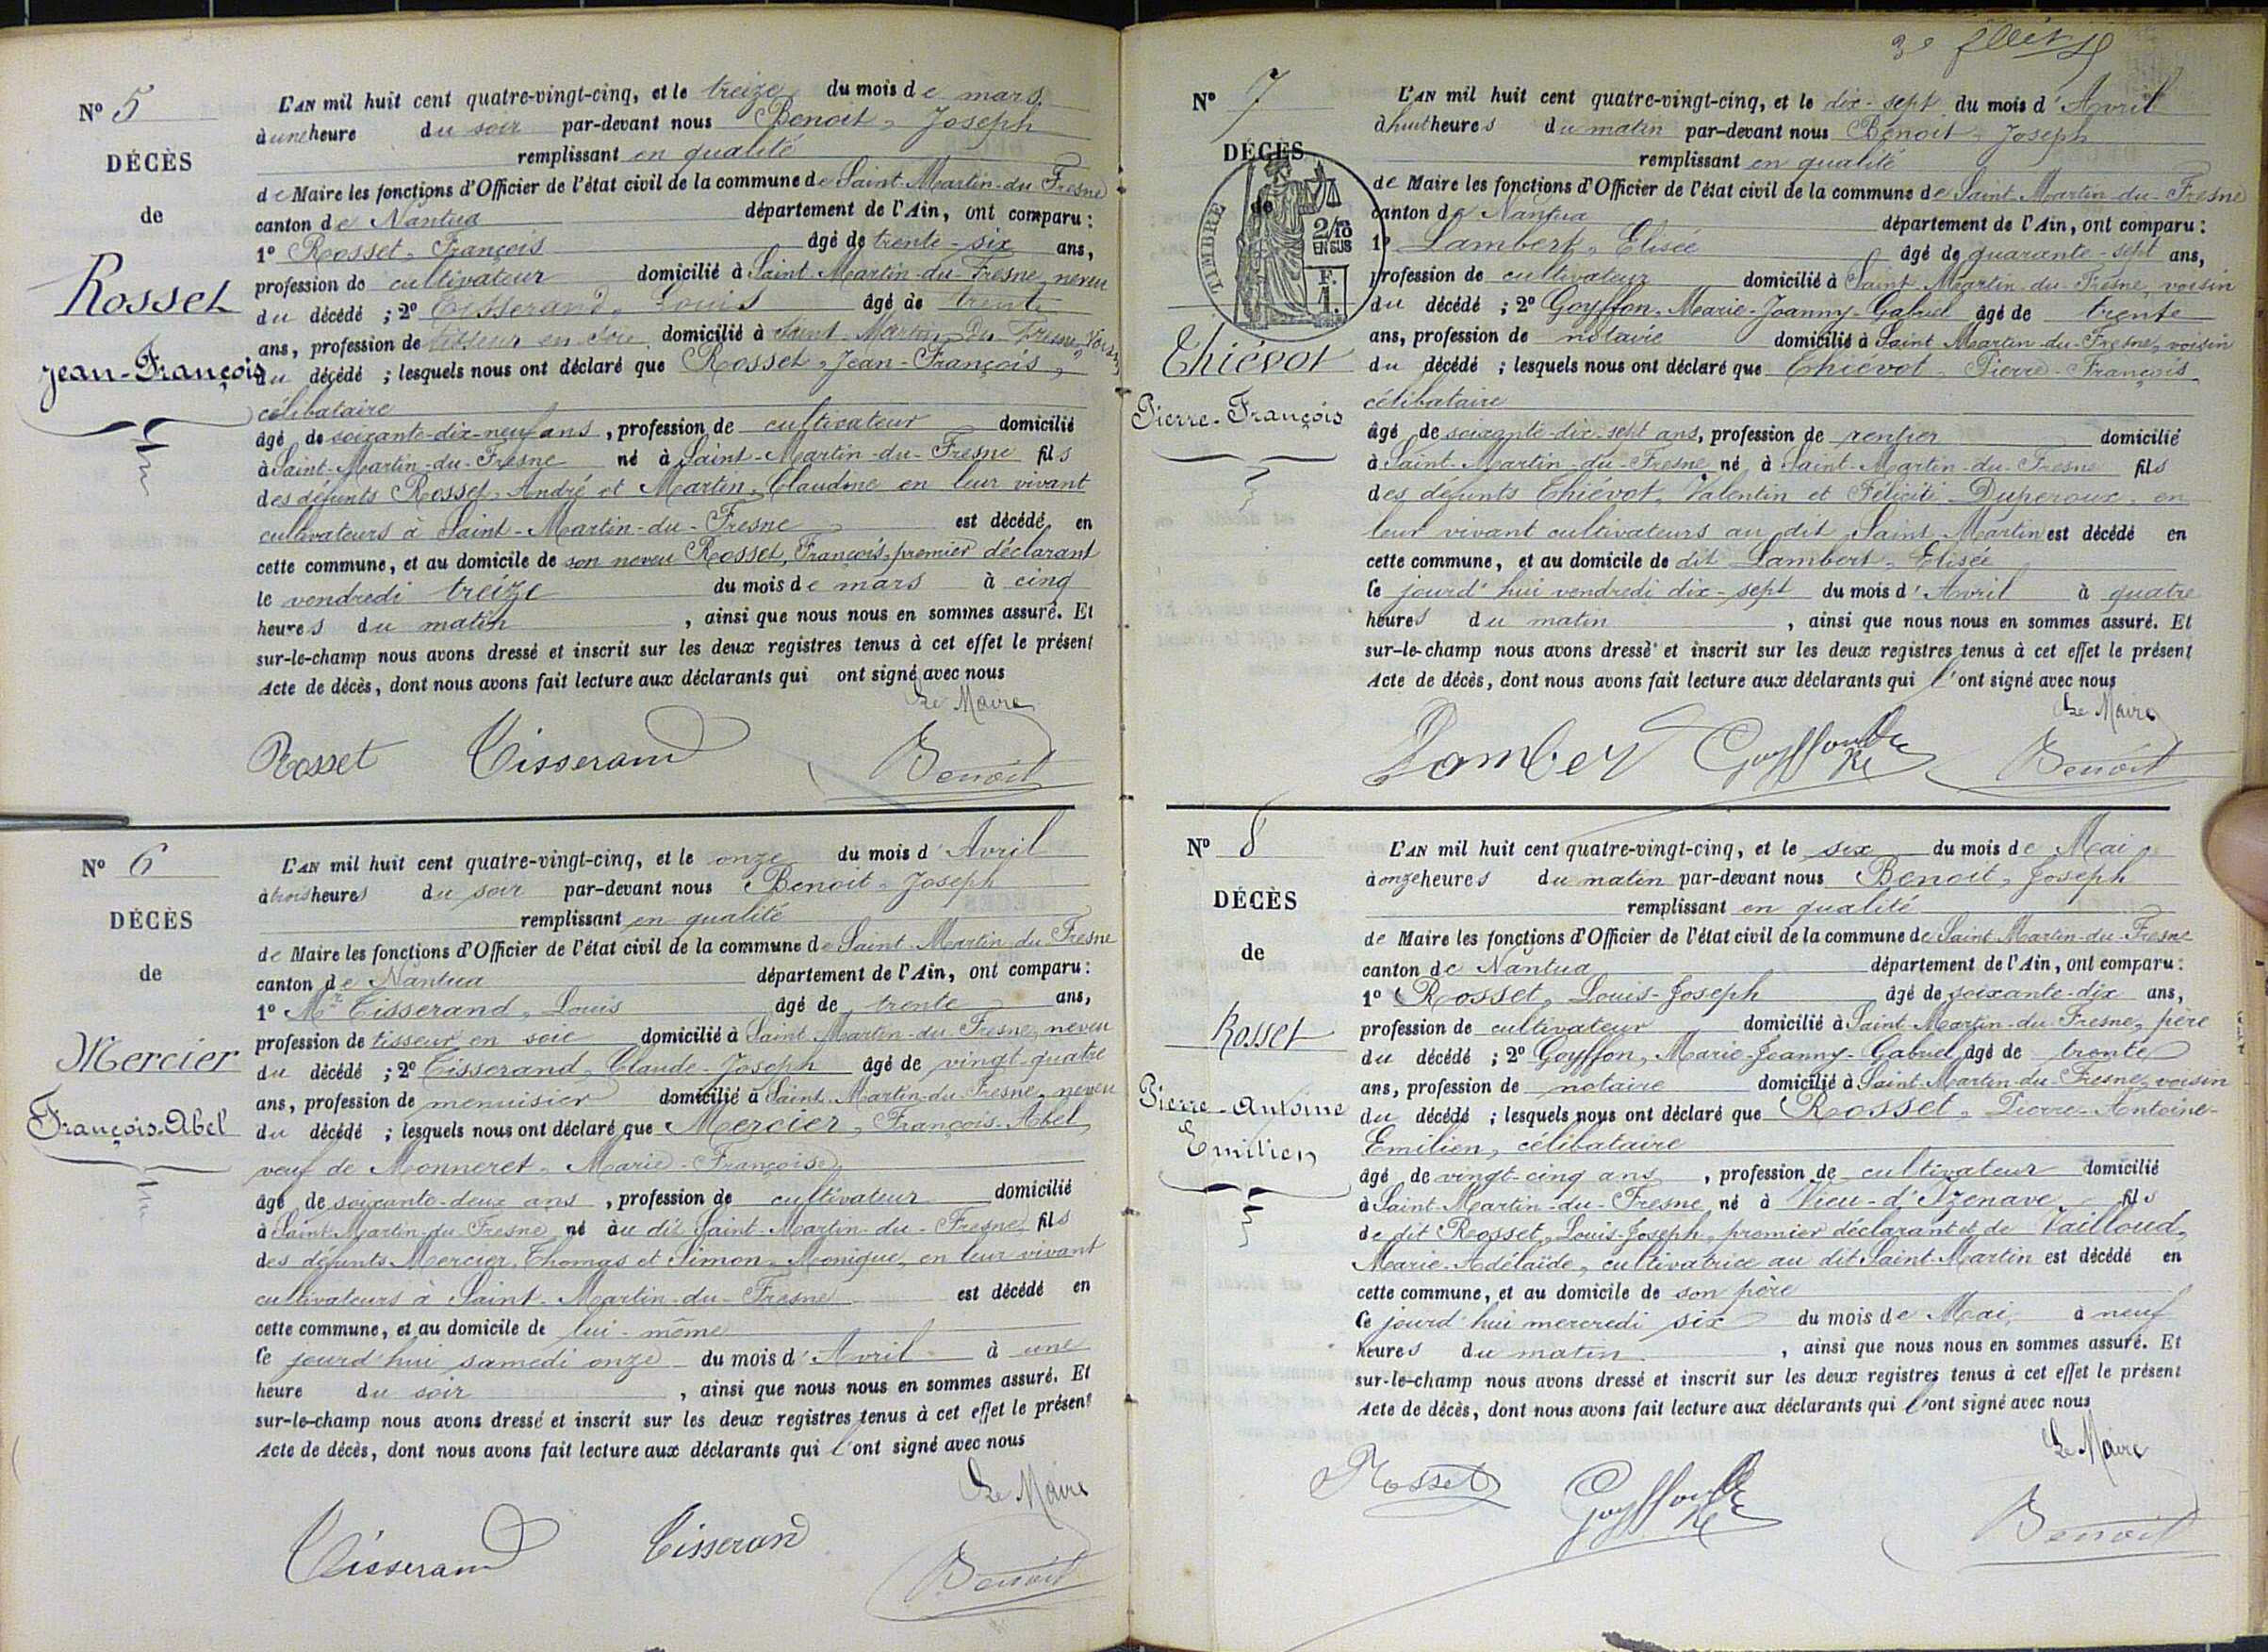 Nº 5
DÉCÈS
de
Rosset
Jean-François
L'AN mil huit cent quatre-vingt-cinq, et le treize du mois de mars
à une heure du soir par-devant nous Benoit, Joseph
remplissant en qualité
de Maire les fonctions d'Officier de l'état civil de la commune de Saint-Martin-du-Fresne
canton de Nantua département de l'Ain, ont comparu :
1º Rosset, François âgé de trente-six ans,
profession de cultivateur domicilié à Saint Martin-du-Fresne, neveu
du décédé ; 2º Tisserand, Louis âgé de trente
ans, profession de tisseur en soie domicilié à Saint Martin Du Fresne, Voisin
du décédé ; lesquels nous ont déclaré que Rosset, Jean-François,
célibataire
âgé de soixante-dix-neuf ans, profession de cultivateur domicilié
à Saint-Martin-du-Fresne né à Saint-Martin-du-Fresne fils
des défunts Rosset, André et Martin, Claudine en leur vivant
cultivateurs à Saint-Martin-du-Fresne est décédé en
cette commune, et au domicile de son neveu Rosset, François, premier déclarant
le vendredi treize du mois de mars à cinq
heures du matin, ainsi que nous nous en sommes assuré. Et
sur-le-champ nous avons dressé et inscrit sur les deux registres tenus à cet effet le présent
Acte de décès, dont nous avons fait lecture aux déclarants qui ont signé avec nous
Le Maire
Rosset Tisserand Benoit
Nº 6
DÉCÈS
de
Mercier
François-Abel
L'AN mil huit cent quatre-vingt-cinq, et le onze du mois d'Avril
à trois heures du soir par-devant nous Benoit, Joseph
remplissant en qualité
de Maire les fonctions d'Officier de l'état civil de la commune de Saint-Martin-du-Fresne
canton de Nantua département de l'Ain, ont comparu :
1º Mr Tisserand, Louis âgé de trente ans,
profession de tisseur en soie domicilié à Saint Martin-du-Fresne, neveu
du décédé ; 2º Tisserand, Claude-Joseph âgé de vingt-quatre
ans, profession de menuisier domicilié à Saint-Martin-du-Fresne, neveu
du décédé ; lesquels nous ont déclaré que Mercier, François-Abel,
veuf de Monneret, Marie-Françoise,
âgé de soixante-deux ans, profession de cultivateur domicilié
à Saint-Martin-du-Fresne né au dit Saint-Martin-du-Fresne fils
des défunts Mercier, Thomas et Simon, Monique, en leur vivant
cultivateurs à Saint-Martin-du-Fresne est décédé en
cette commune, et au domicile de lui-même
Ce jourd'hui samedi onze du mois d'Avril à une
heure du soir, ainsi que nous nous en sommes assuré. Et
sur-le-champ nous avons dressé et inscrit sur les deux registres tenus à cet effet le présent
Acte de décès, dont nous avons fait lecture aux déclarants qui l'ont signé avec nous
Le Maire
Tisserand Tisserand Benoit
Nº 7
DÉCÈS
de
TIMBRE
2/10
EN SUS
F.
1.
Thiévot
Pierre-François
L'AN mil huit cent quatre-vingt-cinq, et le dix-sept du mois d'Avril
à huit heures du matin par-devant nous Benoit, Joseph
remplissant en qualité
de Maire les fonctions d'Officier de l'état civil de la commune de Saint Martin-du-Fresne
canton de Nantua département de l'Ain, ont comparu :
1º Lambert, Elisée âgé de quarante-sept ans,
profession de cultivateur domicilié à Saint Martin-du-Fresne, voisin
du décédé ; 2º Goyffon, Marie-Joanny-Gabriel âgé de trente
ans, profession de notaire domicilié à Saint Martin-du-Fresne, voisin
du décédé ; lesquels nous ont déclaré que Thiévot, Pierre-François,
célibataire
âgé de soixante-dix-sept ans, profession de rentier domicilié
à Saint-Martin-du-Fresne né à Saint-Martin-du-Fresne fils
des défunts Thiévot, Valentin et Félicité Duperoux, en
leur vivant cultivateurs au dit Saint-Martin est décédé en
cette commune, et au domicile de dit Lambert, Elisée
Ce jourd'hui vendredi dix-sept du mois d'Avril à quatre
heures du matin, ainsi que nous nous en sommes assuré. Et
sur-le-champ nous avons dressé et inscrit sur les deux registres tenus à cet effet le présent
Acte de décès, dont nous avons fait lecture aux déclarants qui l'ont signé avec nous
Le Maire
Lambert Goyffon Benoit
Nº 8
DÉCÈS
de
Rosset
Pierre-Antoine
Emilien
L'AN mil huit cent quatre-vingt-cinq, et le six du mois de Mai
à onze heures du matin par-devant nous Benoit, Joseph
remplissant en qualité
de Maire les fonctions d'Officier de l'état civil de la commune de Saint Martin-du-Fresne
canton de Nantua département de l'Ain, ont comparu :
1º Rosset, Louis-Joseph âgé de soixante-dix ans,
profession de cultivateur domicilié à Saint Martin-du-Fresne, père
du décédé ; 2º Goyffon, Marie-Joanny-Gabriel âgé de trente
ans, profession de notaire domicilié à Saint-Martin-du-Fresne, voisin
du décédé ; lesquels nous ont déclaré que Rosset, Pierre-Antoine-
Emilien, célibataire
âgé de vingt-cinq ans, profession de cultivateur domicilié
à Saint-Martin-du-Fresne né à Vieu-d'Izenave, fils
de dit Rosset, Louis-Joseph, premier déclarant et de Vailloud,
Marie-Adélaïde, cultivatrice au dit Saint-Martin est décédé en
cette commune, et au domicile de son père
Ce jourd'hui mercredi six du mois de Mai, à neuf
heures du matin, ainsi que nous nous en sommes assuré. Et
sur-le-champ nous avons dressé et inscrit sur les deux registres tenus à cet effet le présent
Acte de décès, dont nous avons fait lecture aux déclarants qui l'ont signé avec nous
Le Maire
Rosset Goyffon Benoit